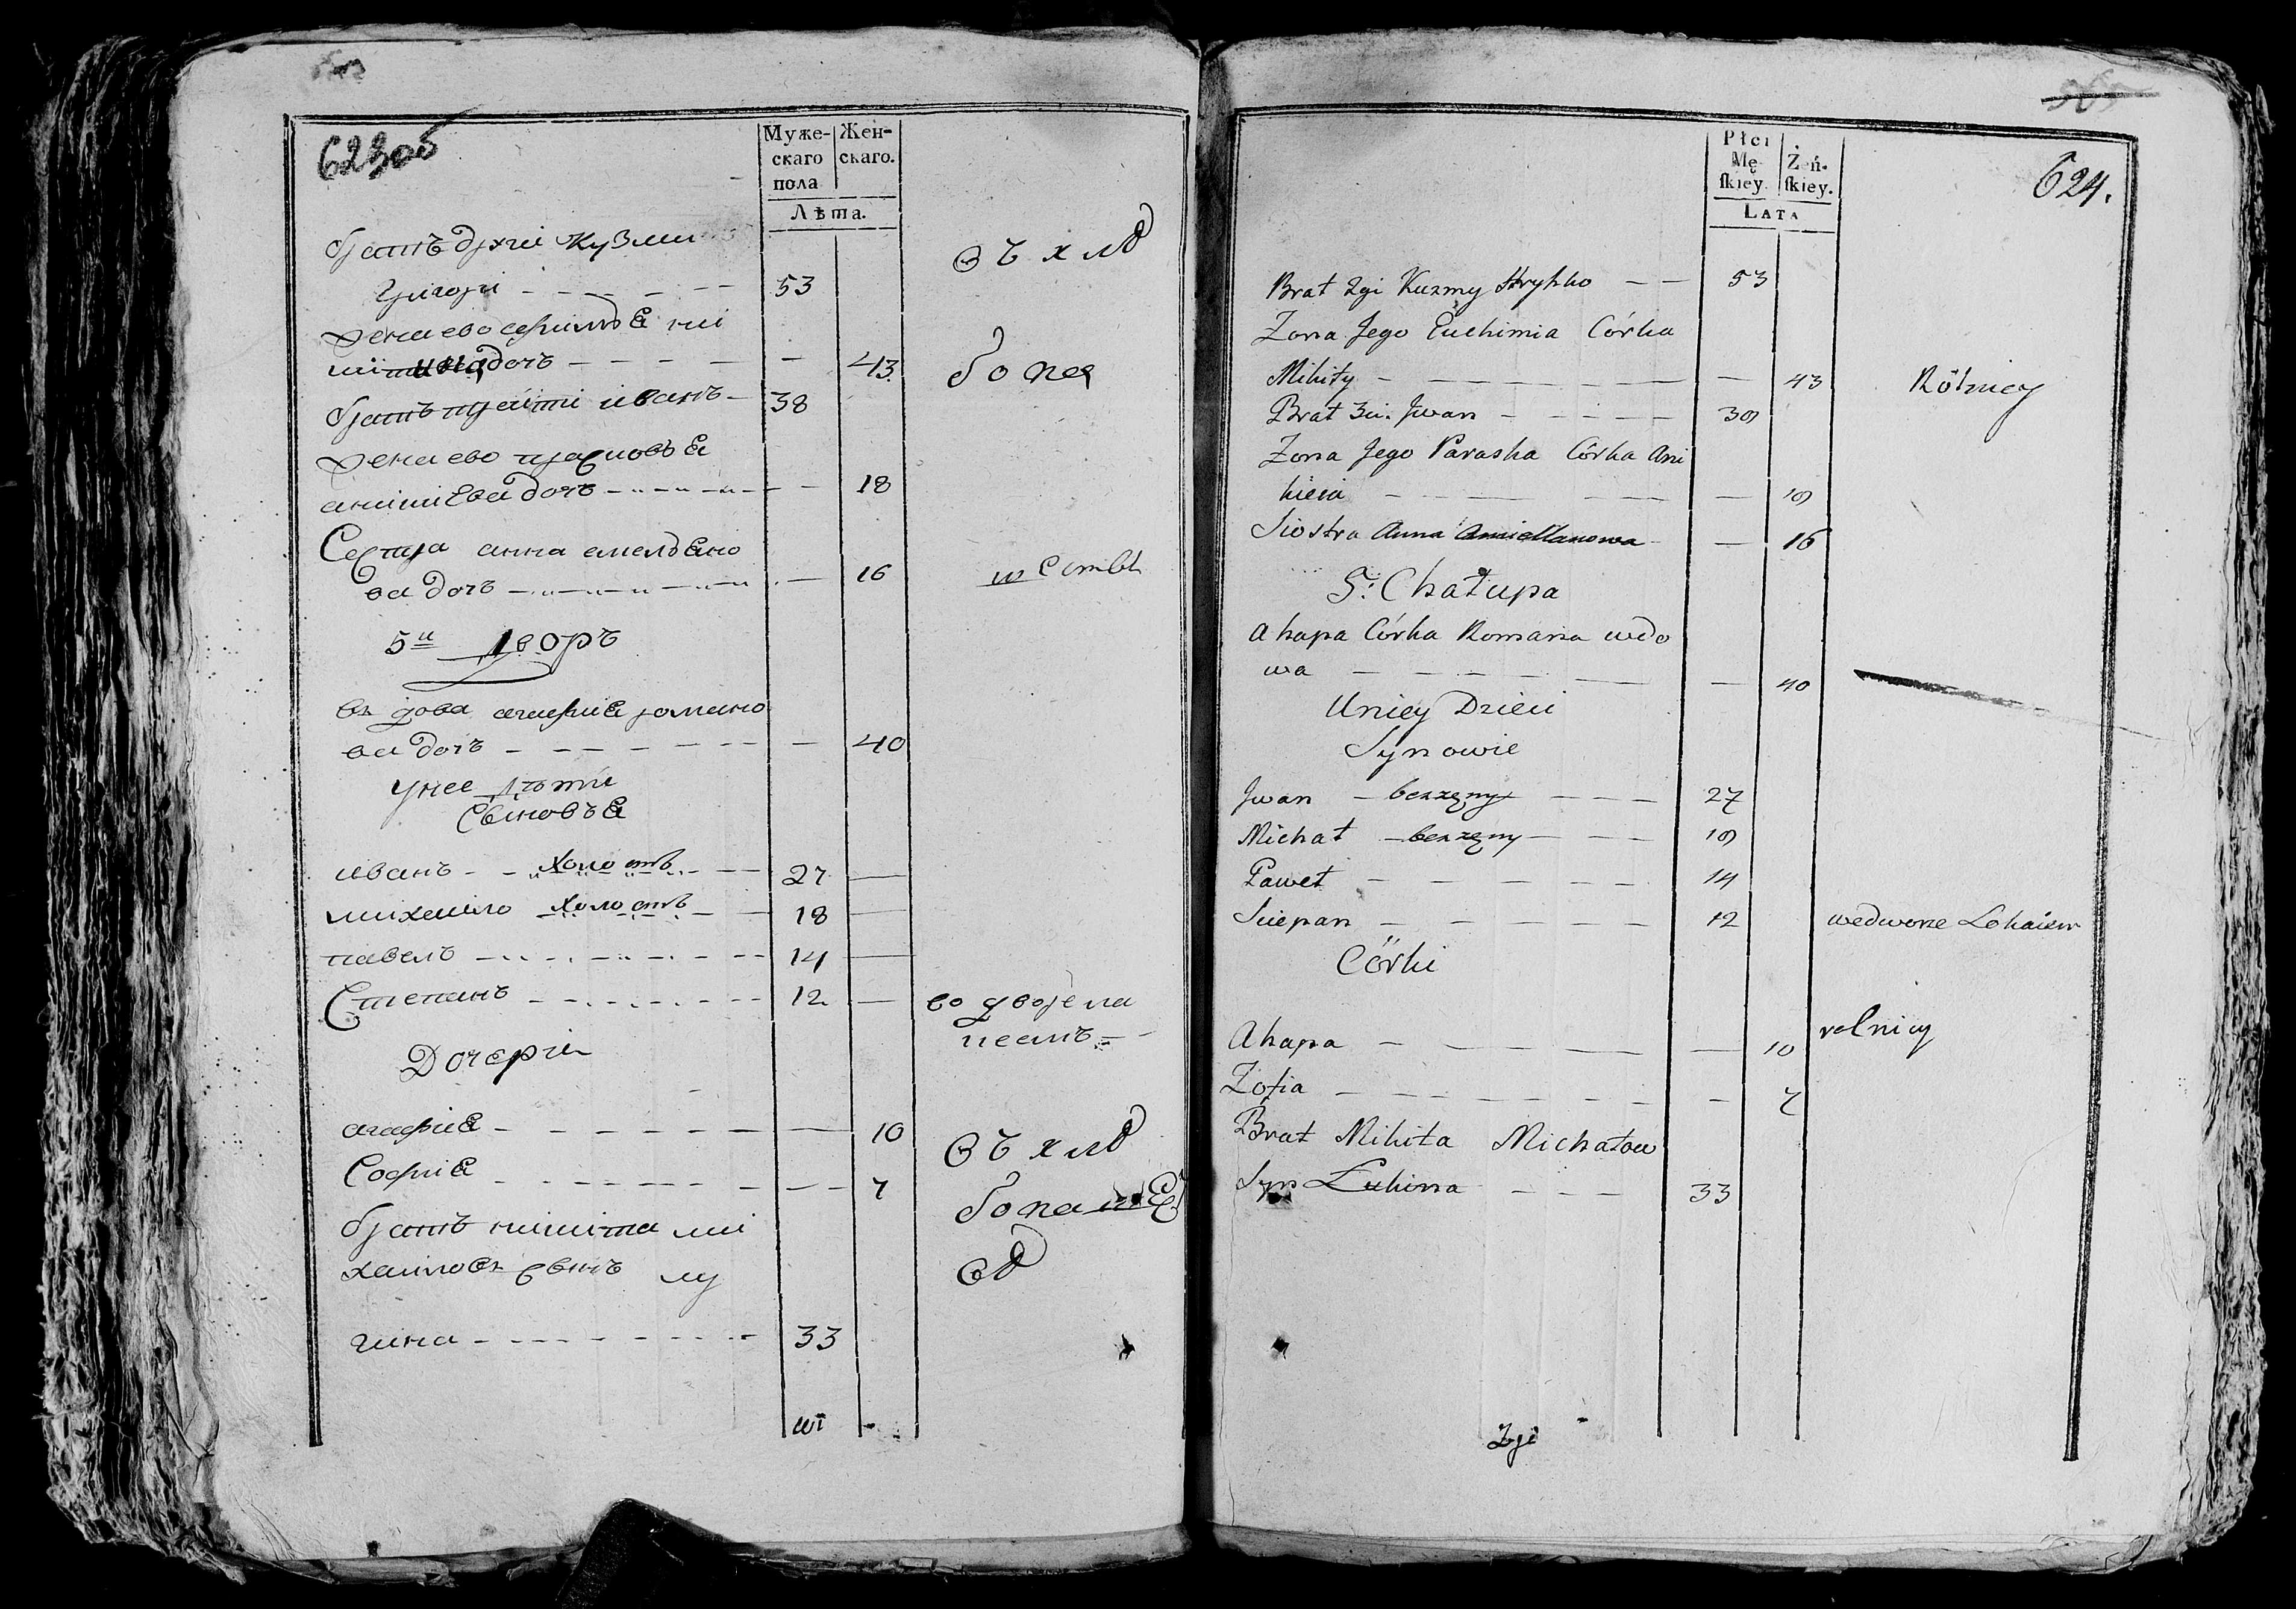 623об
Муже-
скаго
пола
Жен-
скаго.
Лѣта.
братъ другі кузми
григорі 53
жена ево ефимъя ни
дочъ 43
братъ третіі иванъ 38
жена ево прасковъя
дочъ 18
Сестра анна емелъяно
ва дочъ 16
5й Дворъ
вдова агафия романо
ва дочъ 40
у нее дѣти
Сыновъя
иванъ холостъ 27
михаило холостъ 18
павелъ 14
Степанъ 12
во дворе ла
кеемъ
Дочери
агафия 10
София 7
братъ никита ми
хаиловъ сынъ лу
кина 33
624.
Płci
Mę-
skiey.
Żeń-
skiey.
Lata
Brat 2gi Kuzmy Hryhko 53
Zona Jego Euchimia Córka
Mikity 43
Rólnicy
Brat 3ci Jwan 38
Zona Jego Paraska Córka Ani
kieia 18
Siostra Anna 16
5: Chałupa
Ahapa Córka Romana wdo
wa 40
Uniey Dzieci
Synowie
Jwan bezżęny 27
Michał bezżęny 18
Paweł 14
Sciepan 12 wedworze Lokaiem
Córki
Ahapa 10 rolnicy
Zofia 7
Brat Mikita Michałow
Syn Łukina 33